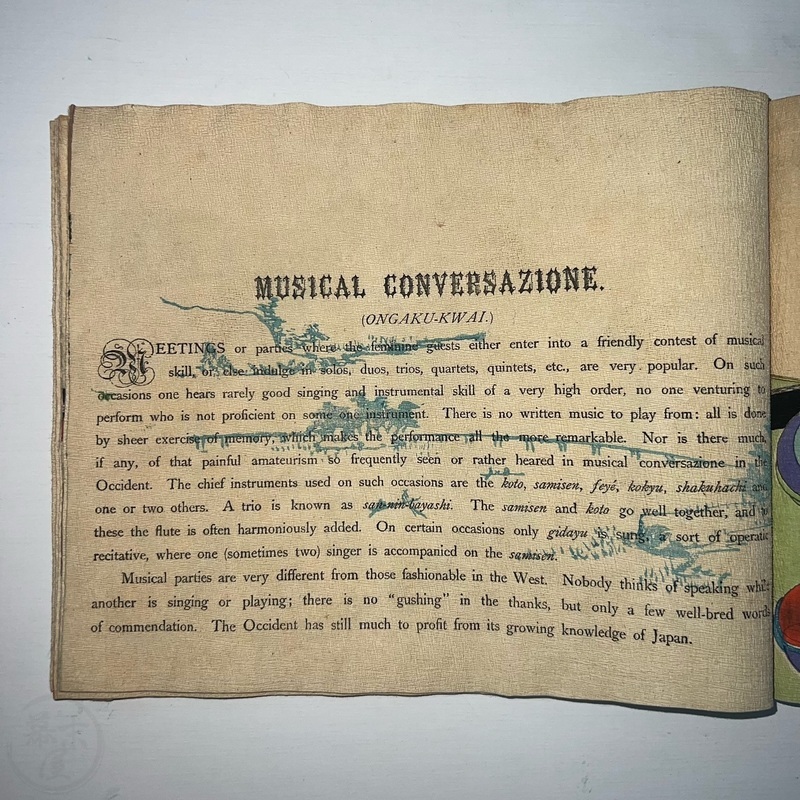 MUSICAL CONVERSAZIONE.
(ONGAKU-KWAI.)
MEETINGS or parties where the feminine guests either enter into a friendly contest of musical
skill, or else indulge in solos, duos, trios, quartets, quintets, etc., are very popular. On such
occasions one hears rarely good singing and instrumental skill of a very high order, no one venturing to
perform who is not proficient on some one instrument. There is no written music to play from: all is done
by sheer exercise of memory, which makes the performance all the more remarkable. Nor is there much,
if any, of that painful amateurism so frequently seen or rather heared in musical conversazione in the
Occident. The chief instruments used on such occasions are the koto, samisen, feyé, kokyu, shakuhachi and
one or two others. A trio is known as san-nin-bayashi. The samisen and koto go well together, and to
these the flute is often harmoniously added. On certain occasions only gidayu is sung, a sort of operatic
recitative, where one (sometimes two) singer is accompanied on the samisen.
Musical parties are very different from those fashionable in the West. Nobody thinks of speaking while
another is singing or playing; there is no "gushing" in the thanks, but only a few well-bred words
of commendation. The Occident has still much to profit from its growing knowledge of Japan.